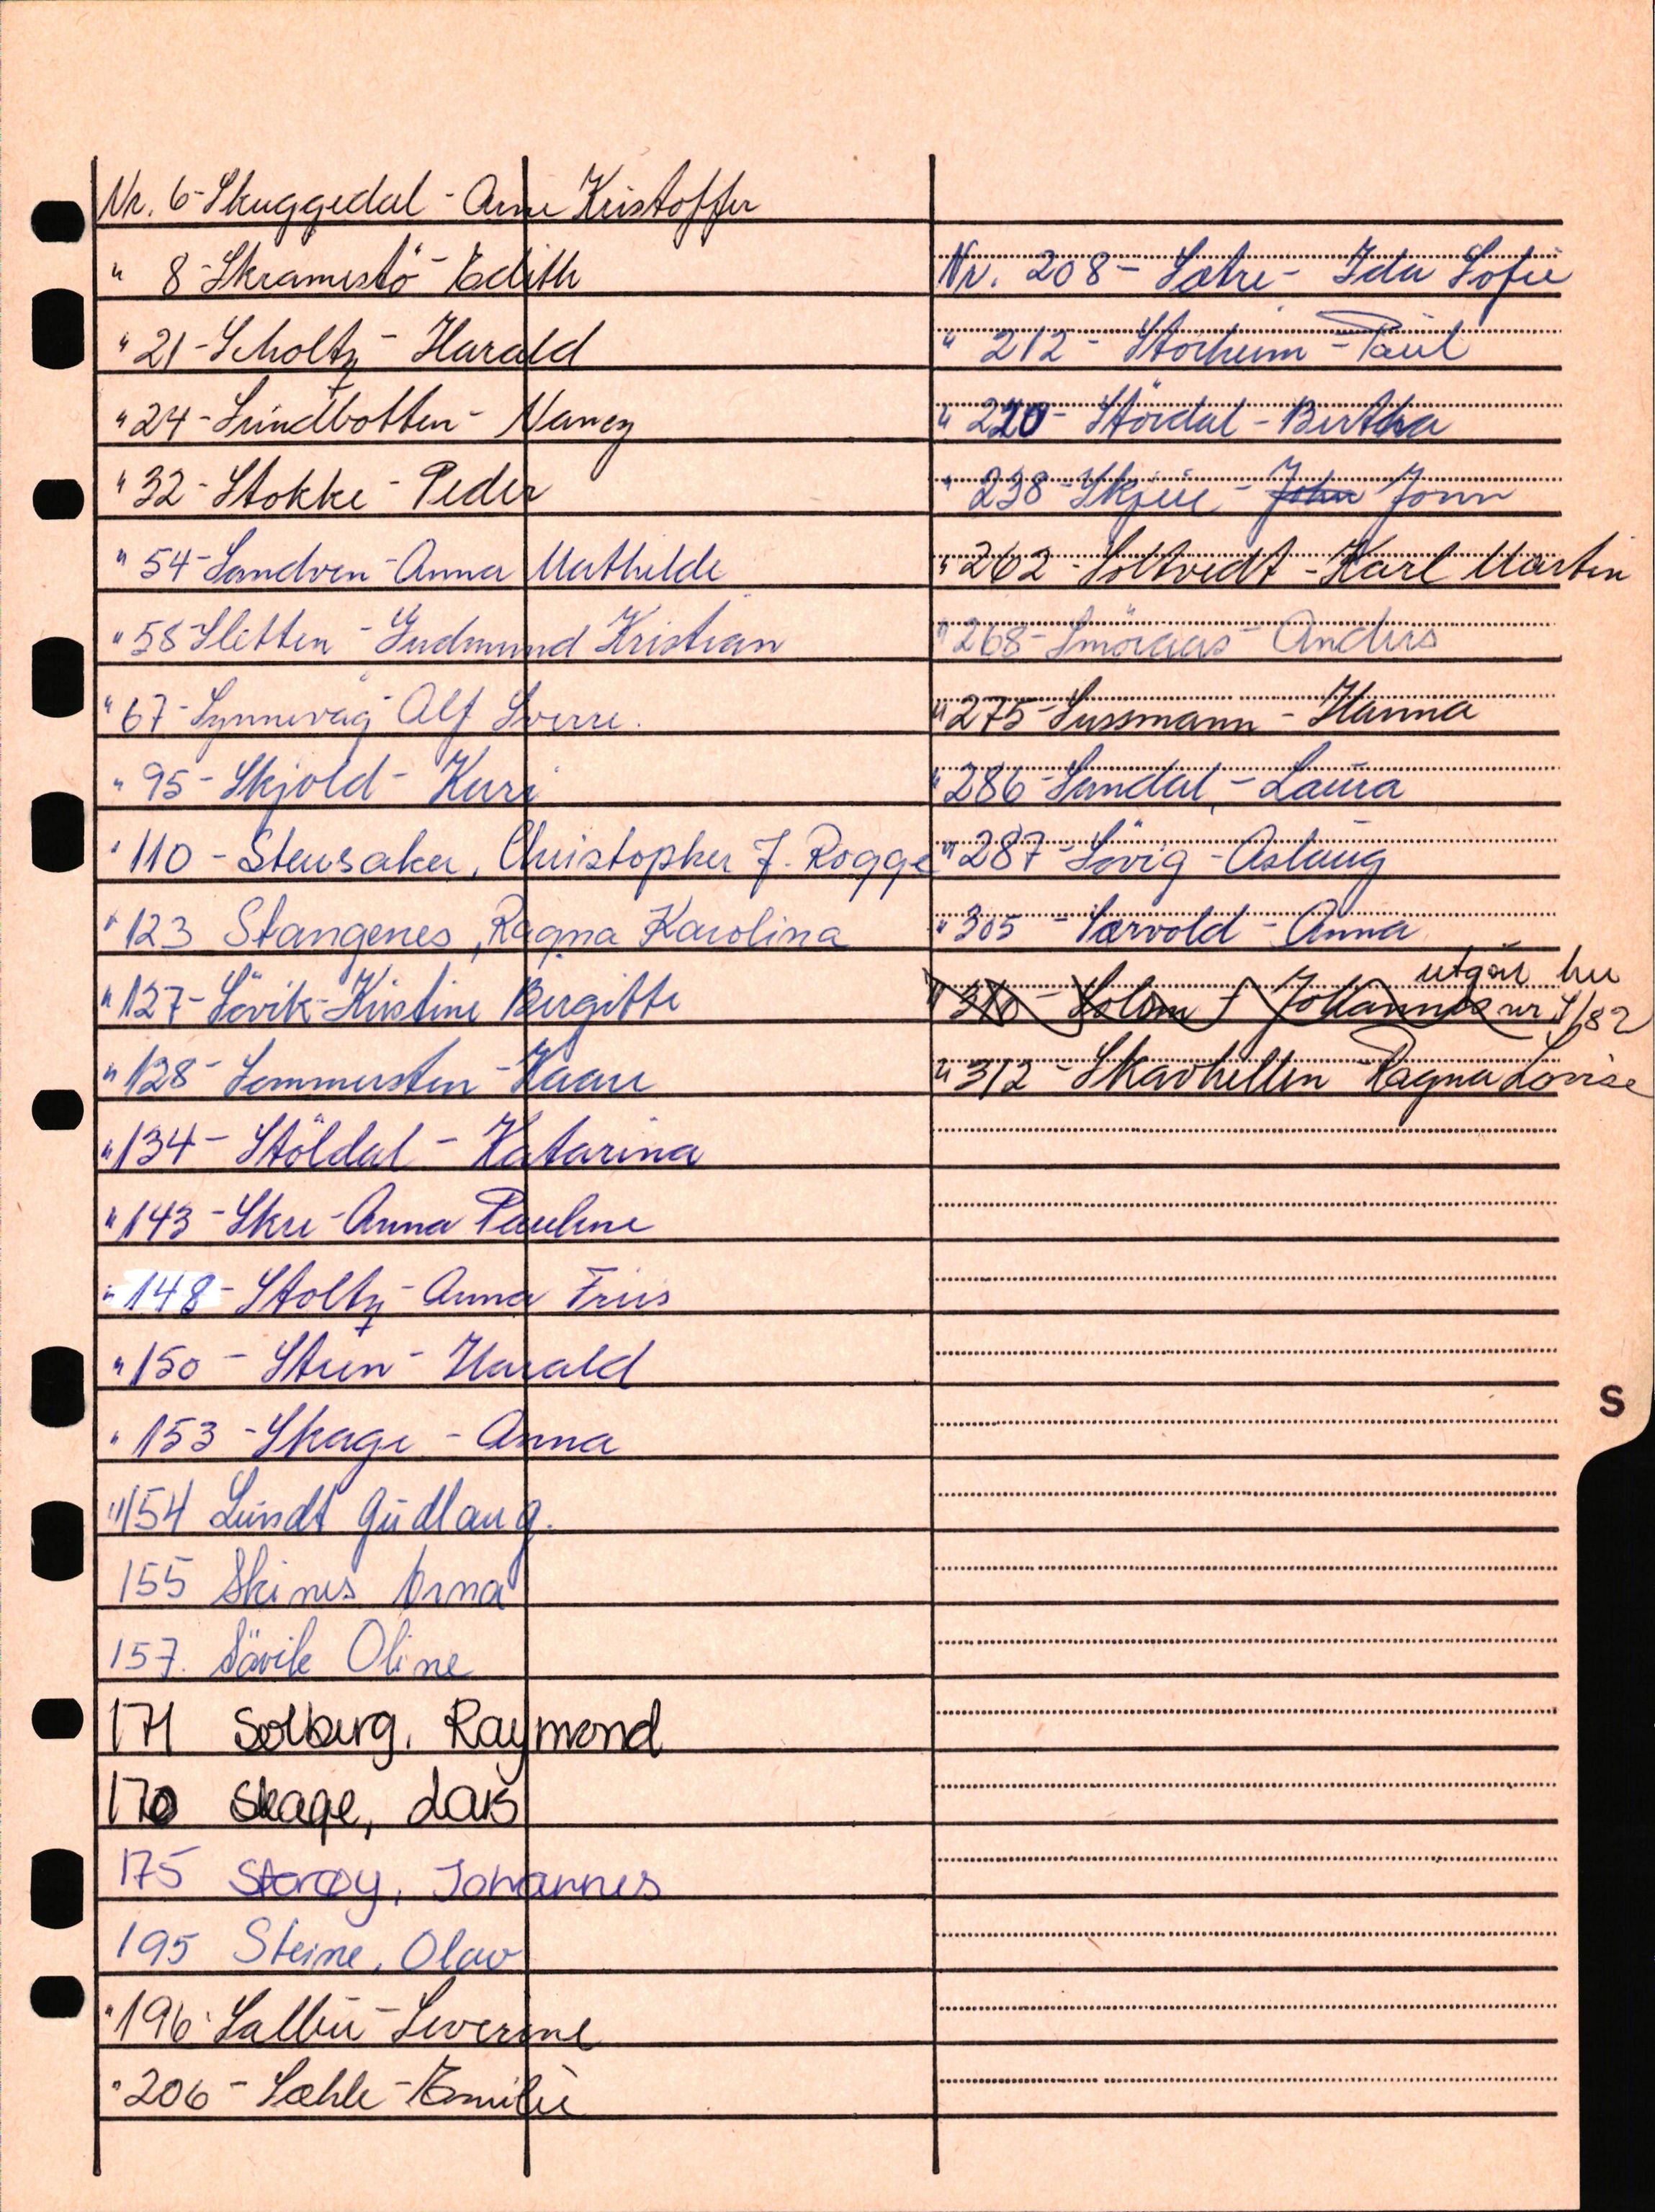 Nr. 6 - Skuggedal - Arne Kristoffer
" 8 - Skramestö - Edith
" 21 - Scholtz - Harald
" 24 - Sundbotten - Nancy
" 32 - Stokke - Peder
" 54 - Sandven - Anna Mathilde
" 58 Sletten - Gudmund Kristian
" 67 - Synnevåg - Alf Sverre.
" 95 - Skjold - Kari
" 110 - Stensaker, Christopher J. Rogge
" 123 Stangenes, Ragna Karolina
" 127 - Sövik - Kristine Bergitte
" 128 - Sommersten - Kaare
" 134 - Stöldal - Katarina
" 143 - Skre - Anna Pauline
" 148 - Stoltz - Anna Friis
" 150 - Steen - Harald
" 153 - Skage - Anna
" 154 Lundt Gudlaug.
155 Skines Arna
157. Sövik Oline
171 Solberg, Raymond
170 Skage, Lars
175 Storøy, Johannes
195 Steine, Olav
" 196 - Salbu - Severine
" 206 - Sæhle - Emilie
Nr. 208 - Sætre - Ida Sofie
" 212 - Storheim - Paul
" 220 - Stördal - Bertha
" 238 - Skjeie - John Jonn
" 262 - Soltvedt - Karl Martin
" 268 - Smöraas - Anders
" 275 - Sussmann - Hanna
" 286 - Sandal - Laura
" 287 - Sövig - Aslaug
" 305 - Særvold - Anna
utgår her
" 310 - Solem - Johannes nr 4/82
" 312 - Skavhellen - Ragna Lovise
S